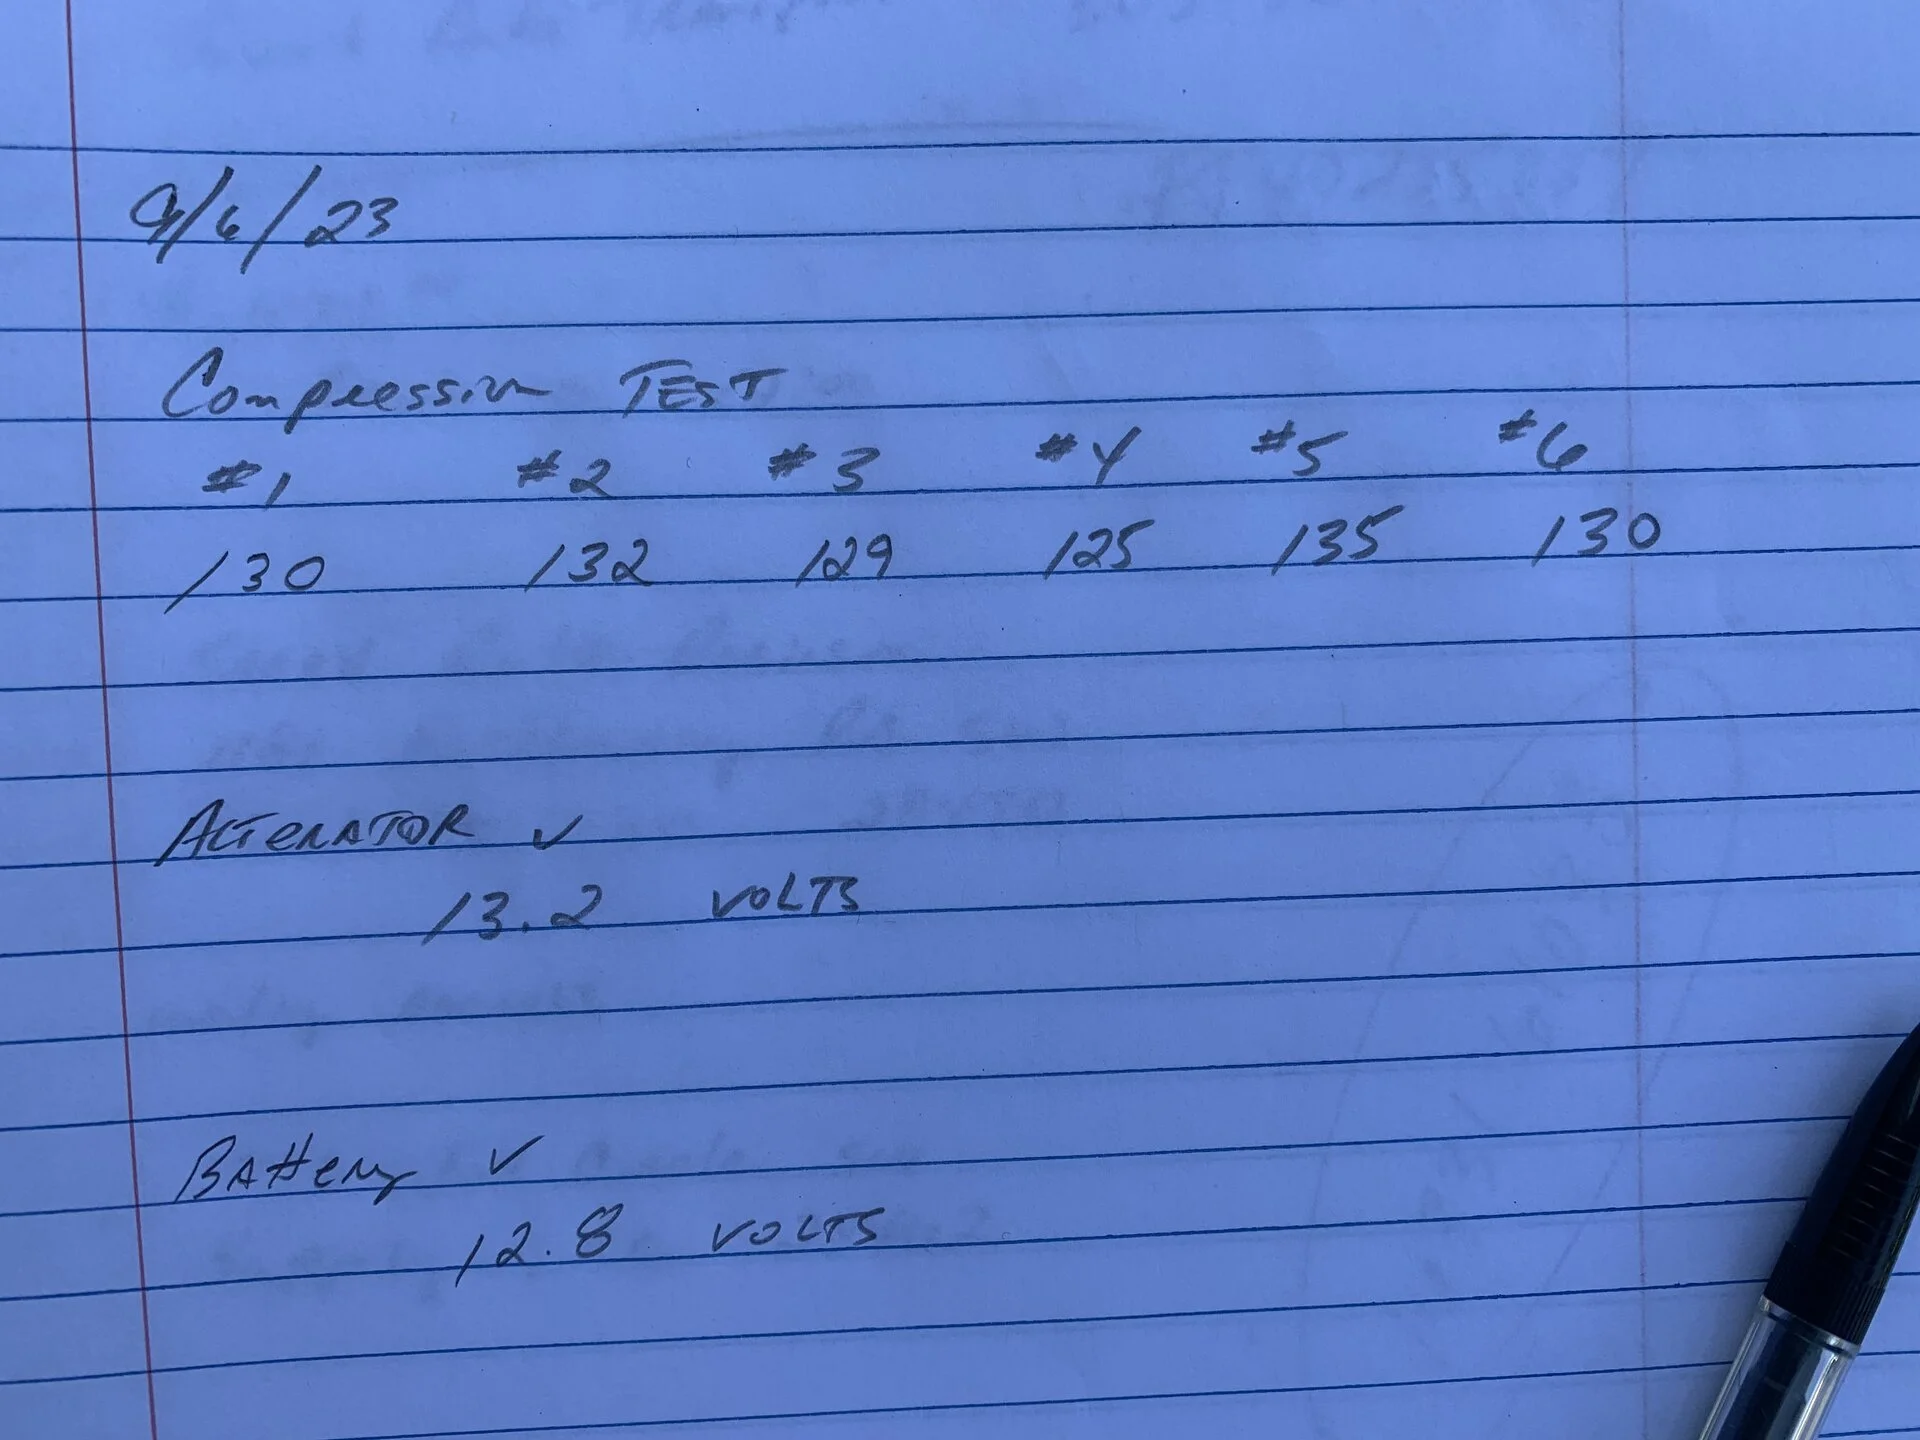 9/6/23
Compression TEST
#1 #2 #3 #4 #5 #6
130 132 129 125 135 130
ALTERATOR ✓
13.2 VOLTS
BAttery ✓
12.8 VOLTS